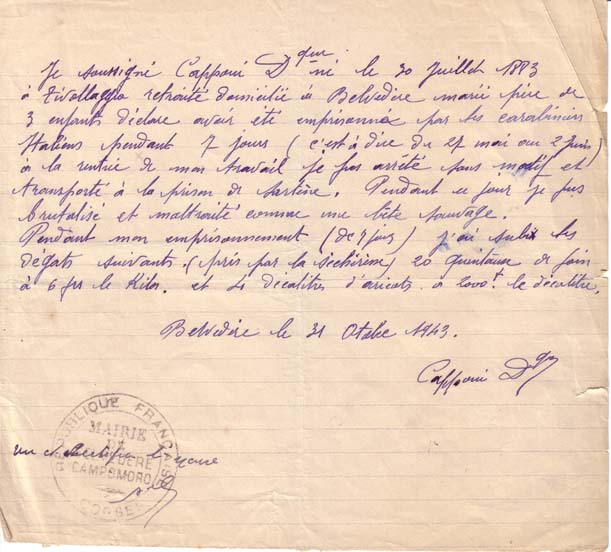 Je soussigné Capponi Dque né le 30 Juillet 1883
à Zivollaggio retraité domicilié à Belvédère marié père de
3 enfants déclare avoir été emprisonné par les carabiniers
Italiens pendant 7 jours (c'est à dire du 27 mai au 2 Juin)
à la rentrée de mon travail je fus arrêté sans motif et
transporté à la prison de Sartène. Pendant ce jour je fus
brutalisé et maltraité comme une bête sauvage.
Pendant mon emprisonnement (de 7 jours) j'ai subi les
degats suivants. (pris par la sècheresse) 20 quintaux de foin
à 6 frs le Kilo. et 4 décalitres d'aricots à 200f. le décalitre.
Belvédère le 31 Otobre 1943.
Capponi Dque
RÉPUBLIQUE FRANÇAISE
MAIRIE
DE
BELVEDERE
CAMPOMORO
CORSE
vu et Certifié le maire